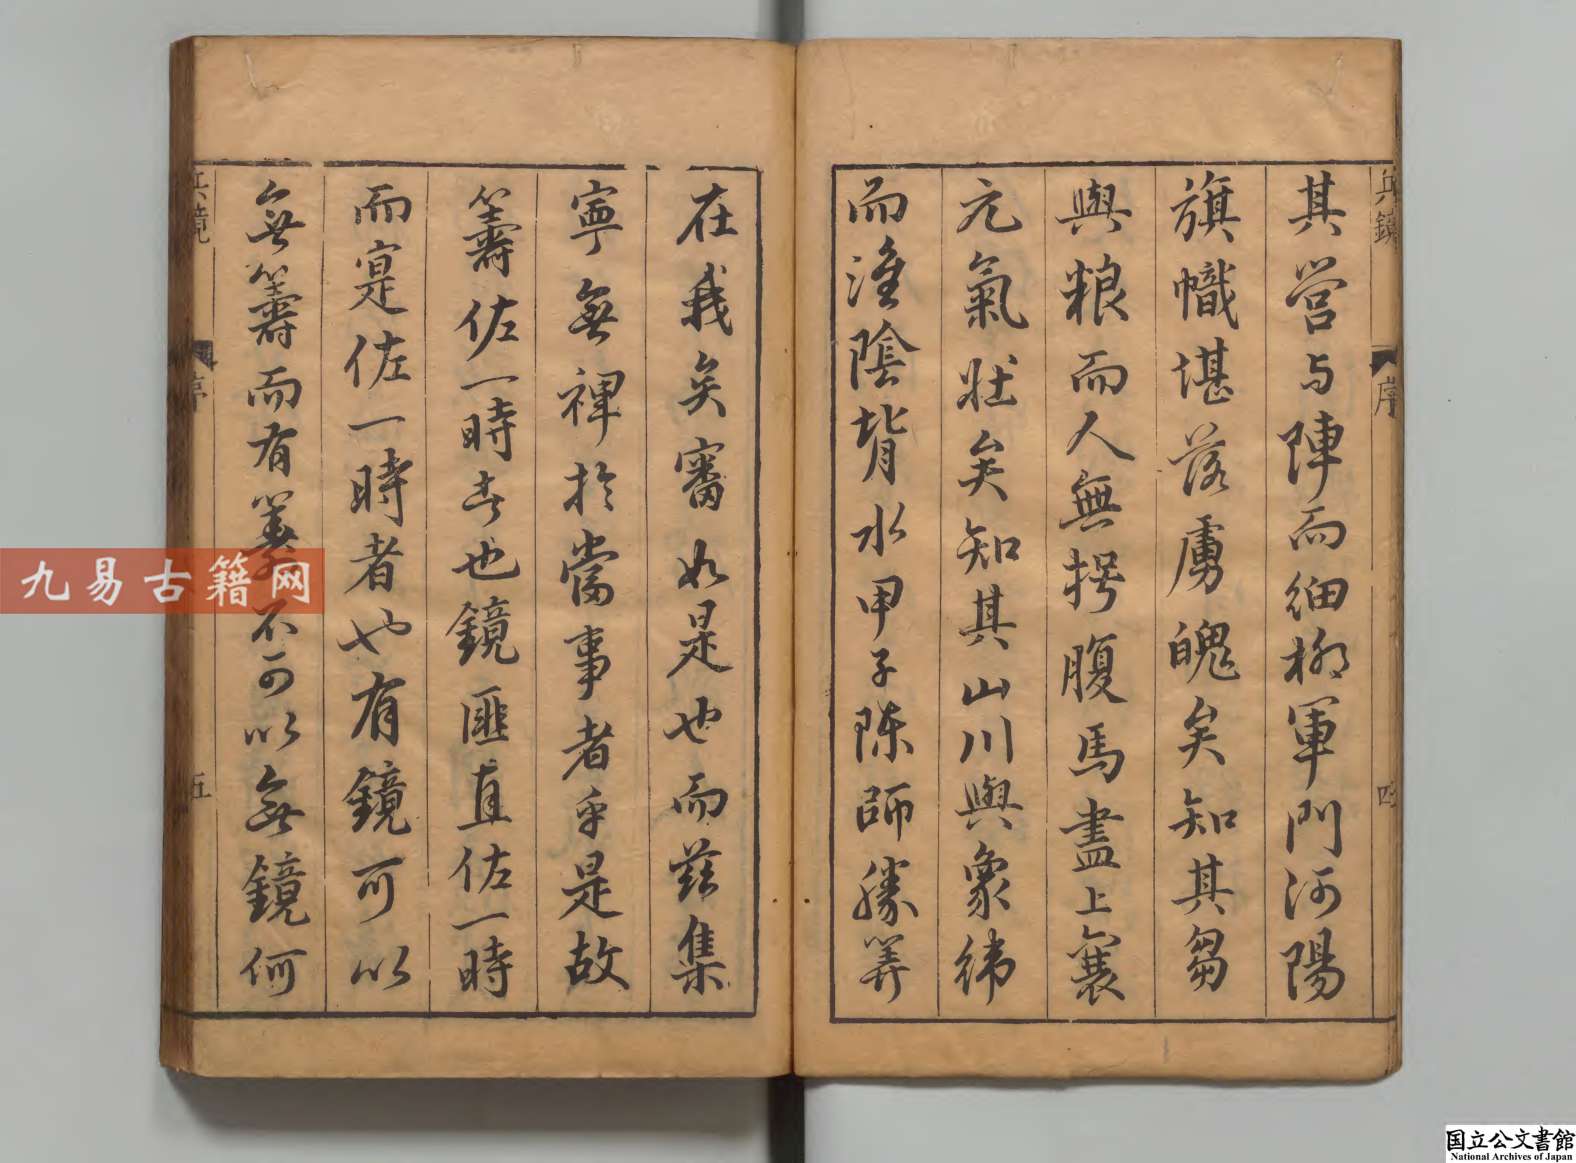 兵鏡 序 四
其営与陣而細柳軍門河陽
旗幟堪落虜魄矣知其芻
與粮而人無枵腹馬盡上襄
元氣壮矣知其山川與象緯
而淮陰背水甲子陳師勝筭
在我矣審如是也而茲集
寧無裨於當事者乎是故
籌佐一時者也鏡匪直佐一時
而寔佐一時者也有鏡可以
無籌而有籌不可以無鏡何
兵鏡 序 五
九易古籍网
国立公文書館
National Archives of Japan